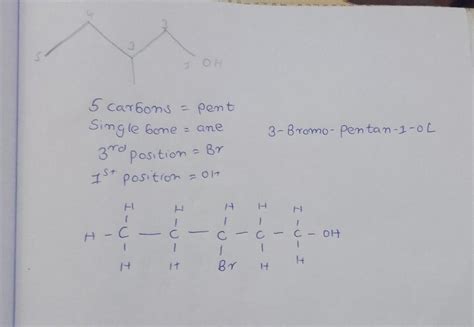 4 3
5 3 1 OH
5 carbons = pent
Single bone = ane
3rd position = Br
1st position = OH
3-Bromo-pentan-1-ol
H H H H H
H - C - C - C - C - C - OH
H H Br H H